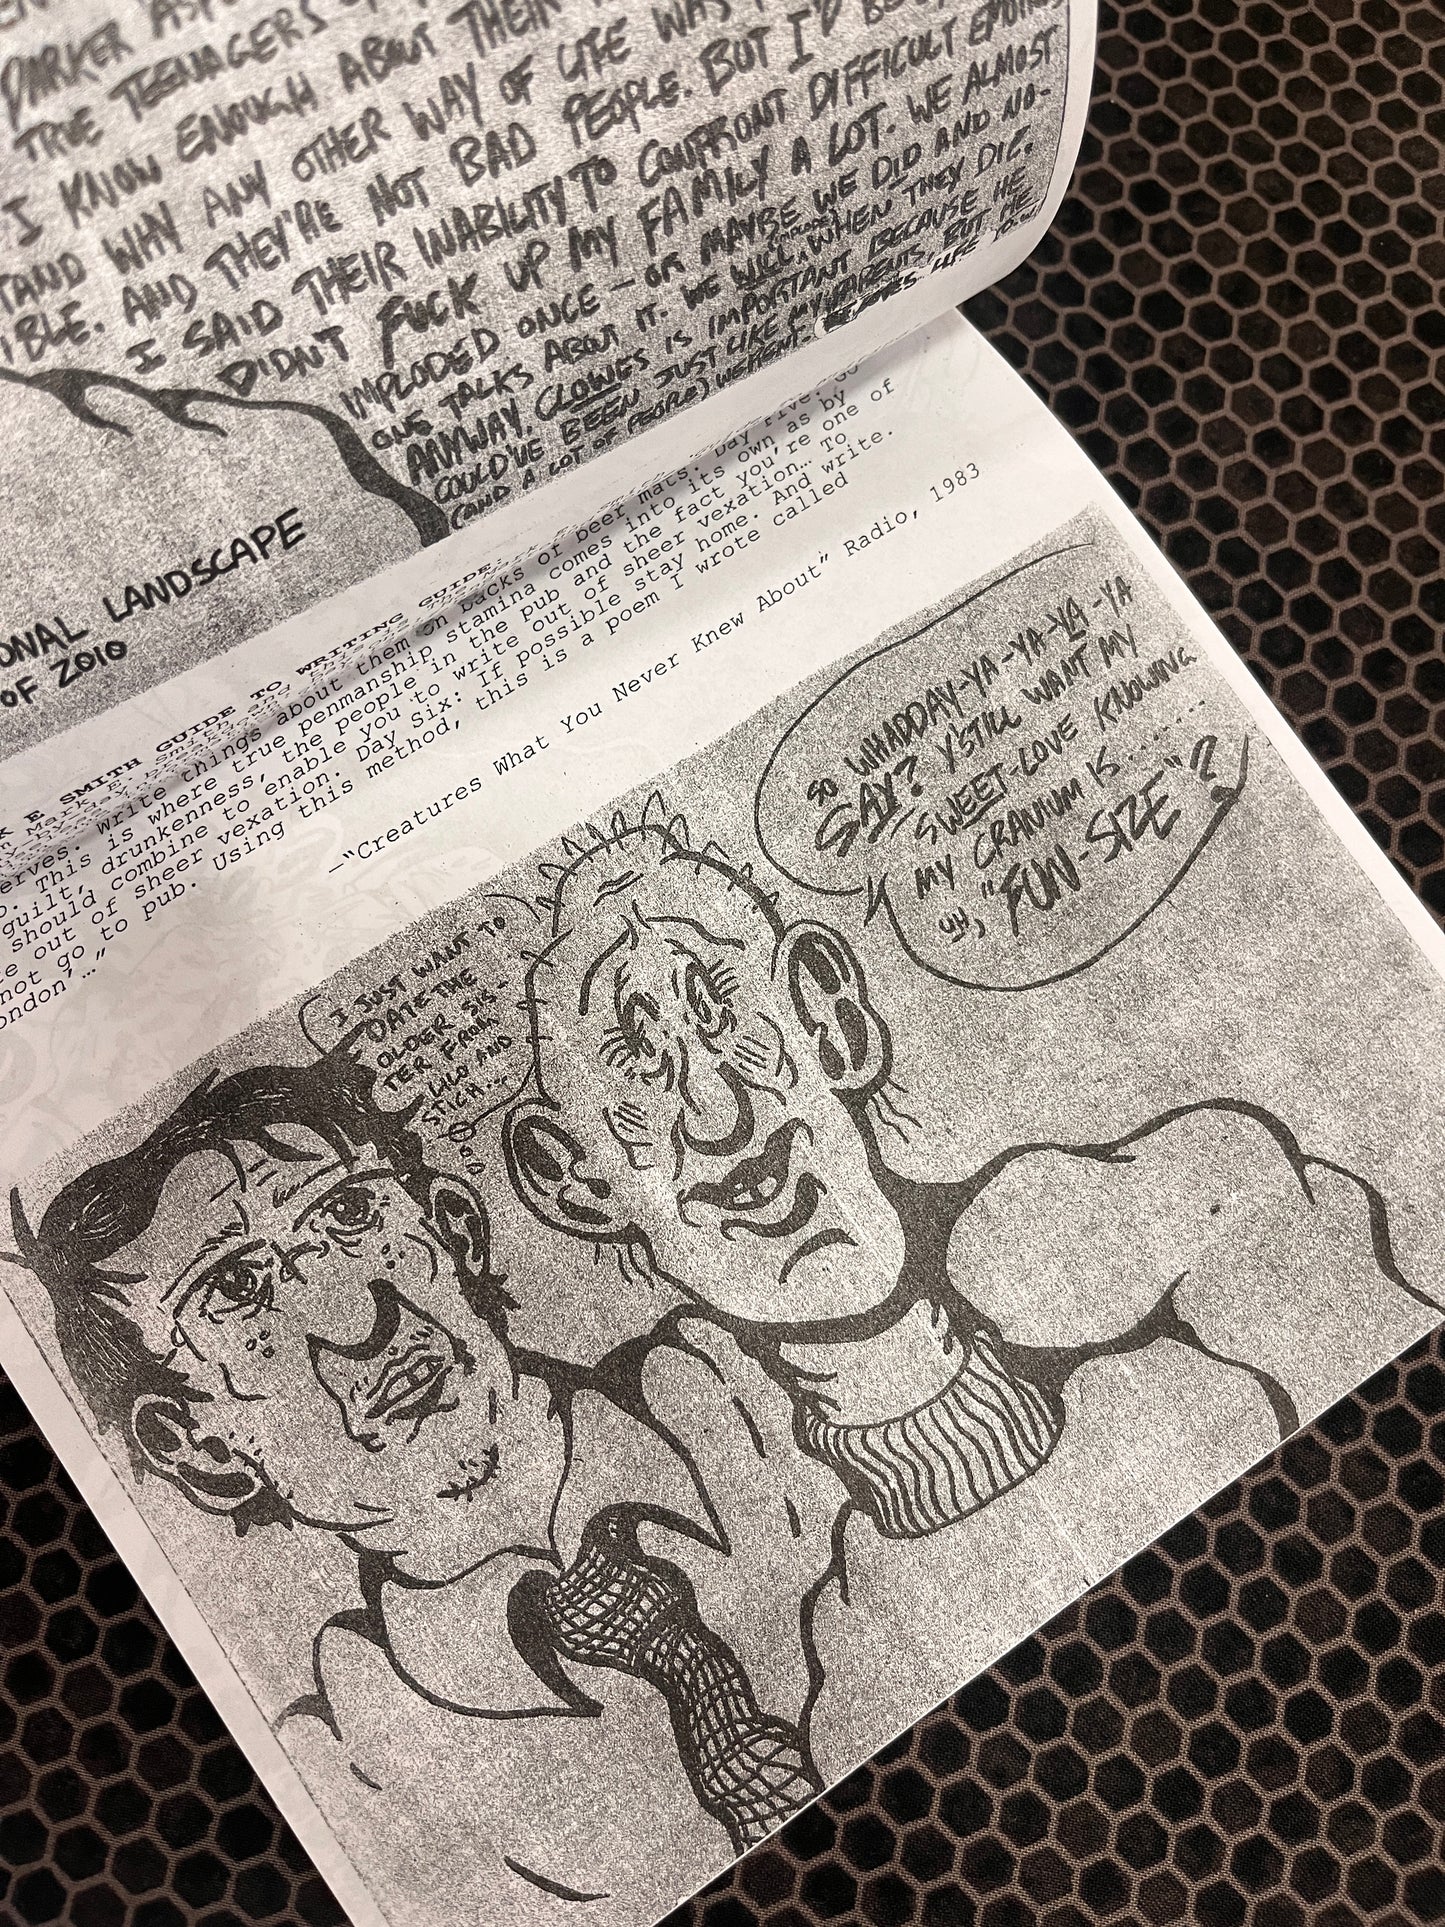 DARKER
TRUE TEENAGERS
I KNOW ENOUGH ABOUT THEIR
TAND WHY ANY OTHER WAY OF LIFE WAS
IBLE. AND THEY'RE NOT BAD PEOPLE. BUT I'D BE
I SAID THEIR INABILITY TO CONFRONT DIFFICULT EMOTIONS
DIDN'T FUCK UP MY FAMILY A LOT. WE ALMOST
IMPLODED ONCE - OR MAYBE WE DID AND NO-
ONE TALKS ABOUT IT. WE WILL, WHEN THEY DIE.
ANYWAY, CLOWES IS IMPORTANT BECAUSE HE
COULD'VE BEEN JUST LIKE MY PARENTS, BUT HE
(AND A LOT OF PEOPLE) WEREN'T.
ONAL LANDSCAPE
OF 2010
K E SMITH GUIDE TO WRITING GUIDE
erves. Write things about them on backs of beer mats. Day five:
This is where true penmanship stamina comes into its own as by
guilt, drunkenness, the people in the pub and the fact you're one of
should combine to enable you to write out of sheer vexation… To
e out of sheer vexation. Day Six: If possible stay home. And write.
not go to pub. Using this method, this is a poem I wrote called
ondon'…"
—"Creatures What You Never Knew About" Radio, 1983
SO WHADDAY-YA-YA-YA-YA
SAY? Y'STILL WANT MY
SWEET-LOVE KNOWING
MY CRANIUM IS.......
UH, "FUN-SIZE"?
I JUST WANT TO
DATE THE
OLDER SIS-
TER FROM
LILO AND
STICH...